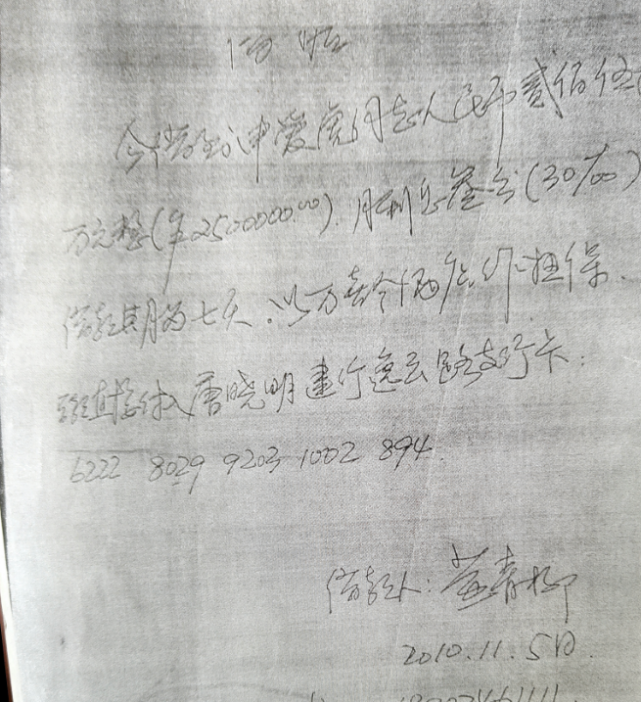 借据
今借到申爱虎同志人民币贰佰伍
万元整(¥2500000.00).月利息叁分(30‰)
借款期为七天.以万喜令酒店作担保.
唐晓明建行逸云路支行卡:
6222 8029 9203 1002 894.
借款人:黄青柳
2010.11.5日.